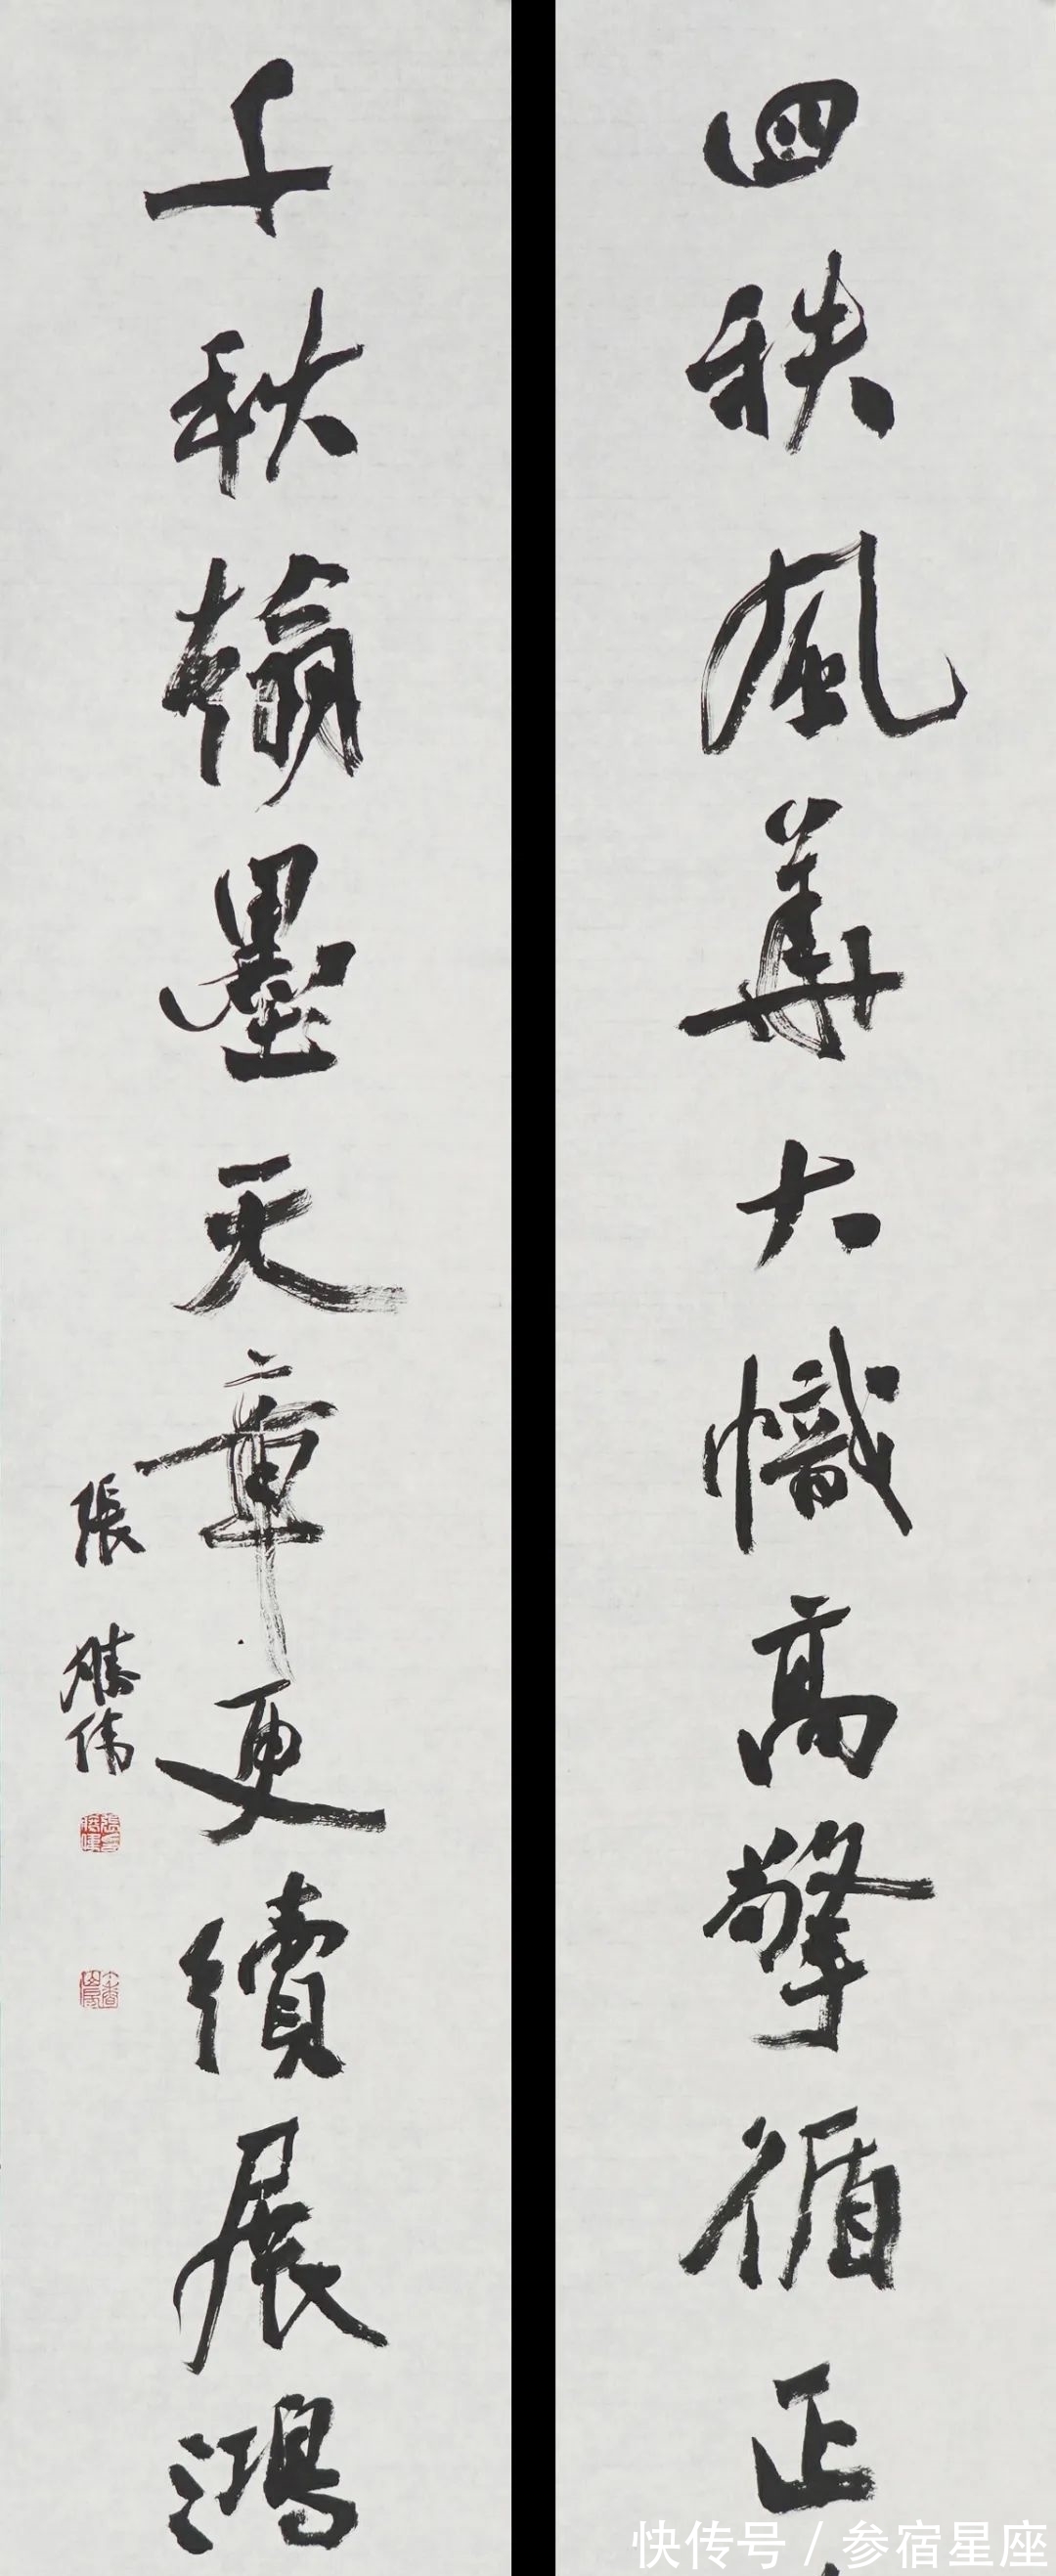 四秩風華大幟高擎循正
千秋翰墨天章更續展鴻
張勝偉
快传号 / 参宿星座